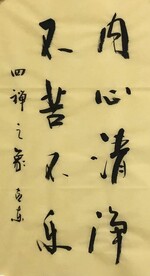 内心清净
不苦不乐
四禅之象